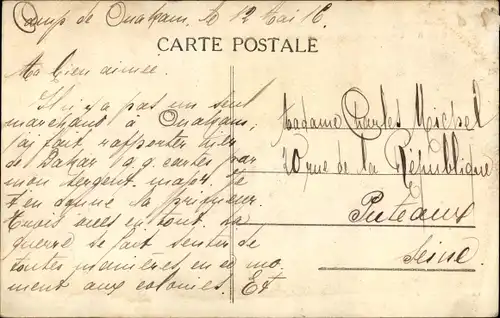 Camp de Ouakam, le 12 Mai 16.
CARTE POSTALE
Ma bien aimée.
Il n'y a pas un seul
marchant à Ouakam;
j'ai fait rapporter hier
de Dakar q.q. cartes par
mon sergent-major. Je
t'en donne la primeur.
trois vues en tout. La
guerre se fait sentir de
toutes manières en ce mo
ment aux colonies. Et
Madame Charles Michel
20 rue de la République
Puteaux
Seine.